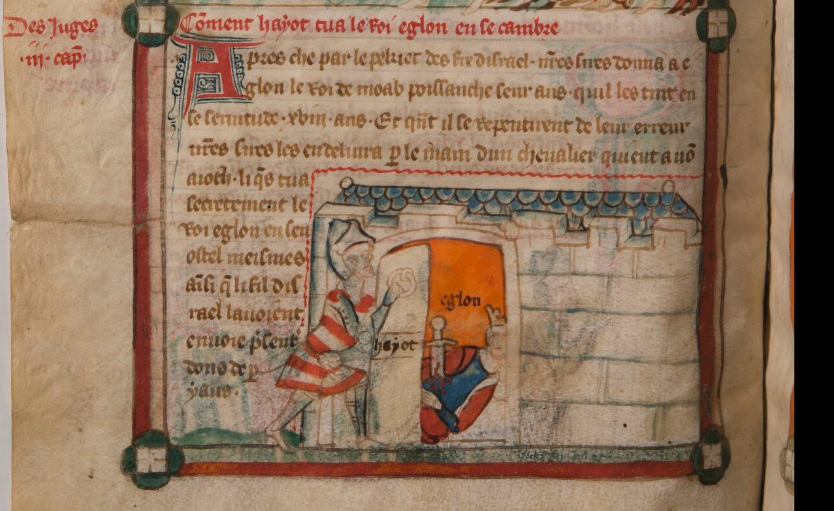 Des Juges
·iii· cap̄·
Cōment hayot tua le Roi eglon en se cambre
Apres che par le pekiet des fix disrael· nr̄es sires donna a e
glon le Roi de moab poissanche seur aus· quil les tint en
se seruitude· xviii· ans· Et qn̄t il se repentirent de leur erreur
nr̄es sires les endeliura p̱ le main dun cheualier qui eut a nō
aioth· li q̄s tua
secretement le
Roi eglon en seu
ostel meismes
aīsi q̄ li fil dis
rael lauoient
enuoie p̄sent
dons de p
yaus·
eglon
hayot